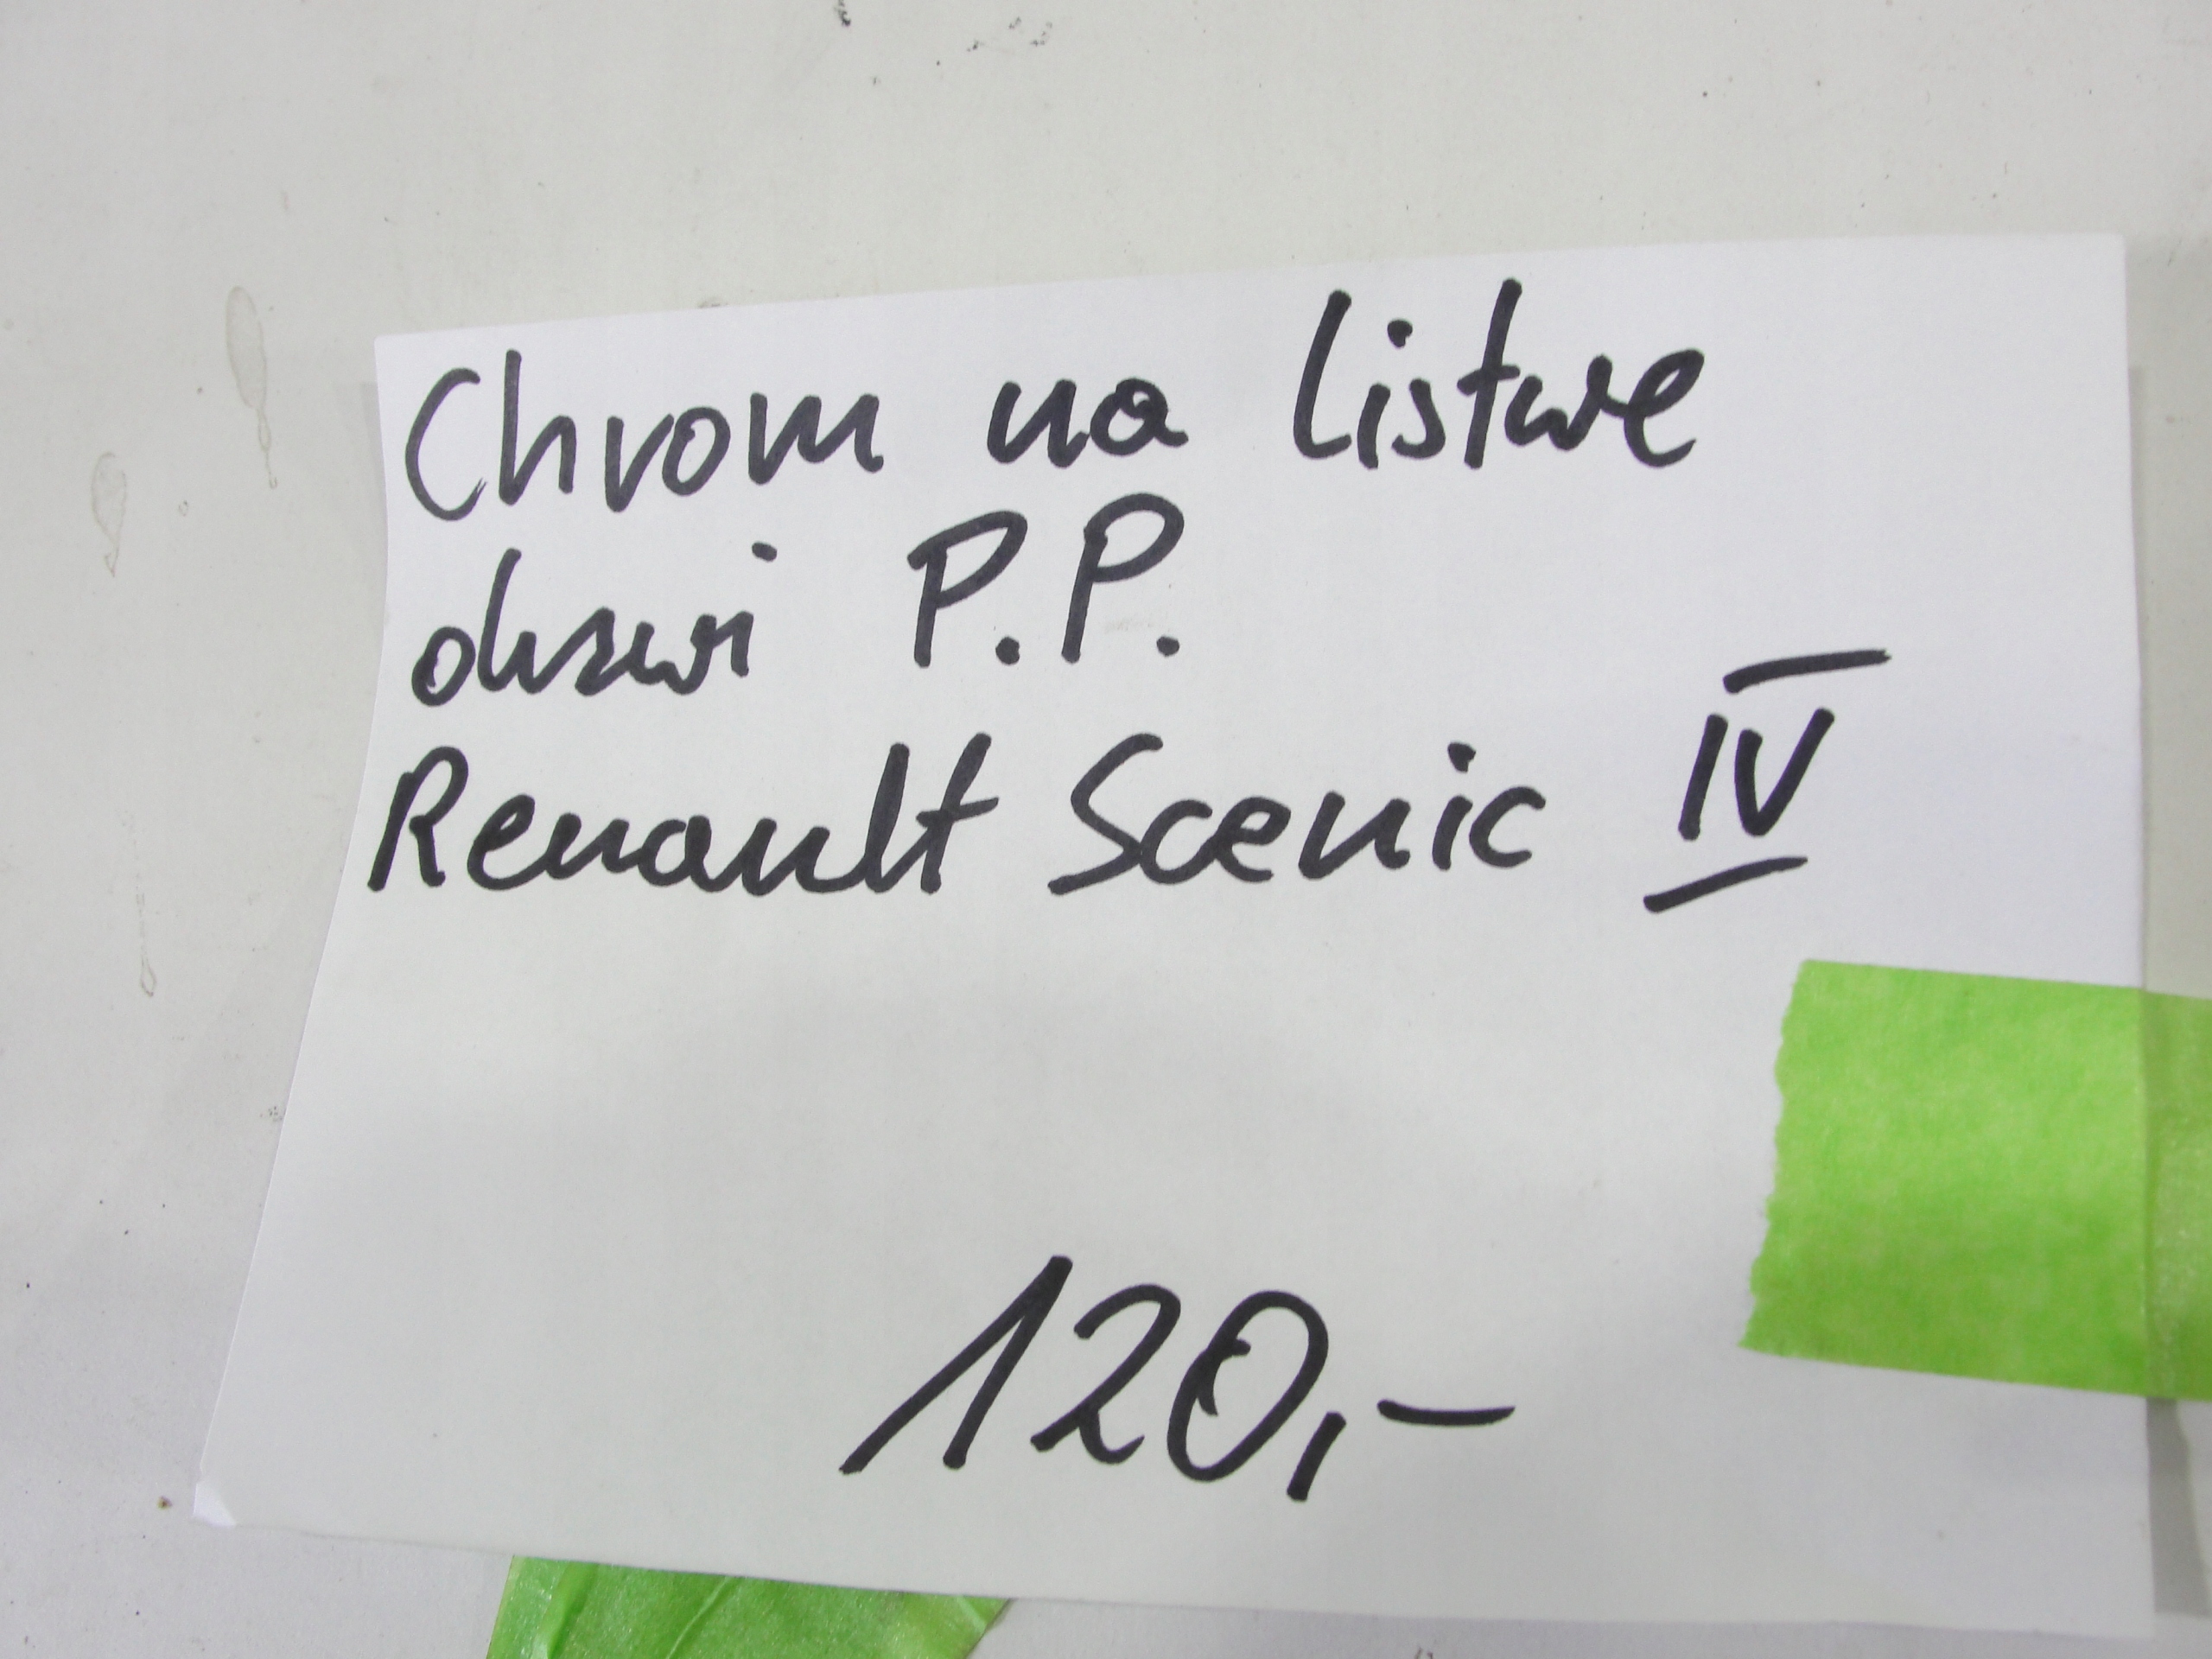 Chrom na listwe
drzwi P.P.
Renault Scenic IV
120,-